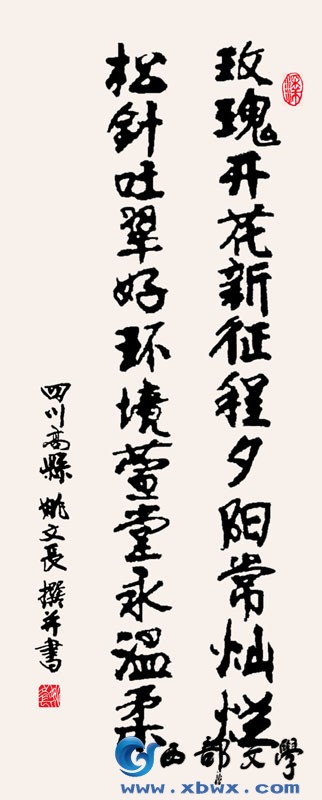 玫瑰开花新征程夕阳常灿烂
松針吐翠好环境萱堂永溫柔
四川高縣姚文長撰并書
西部文學
www.xbwx.com